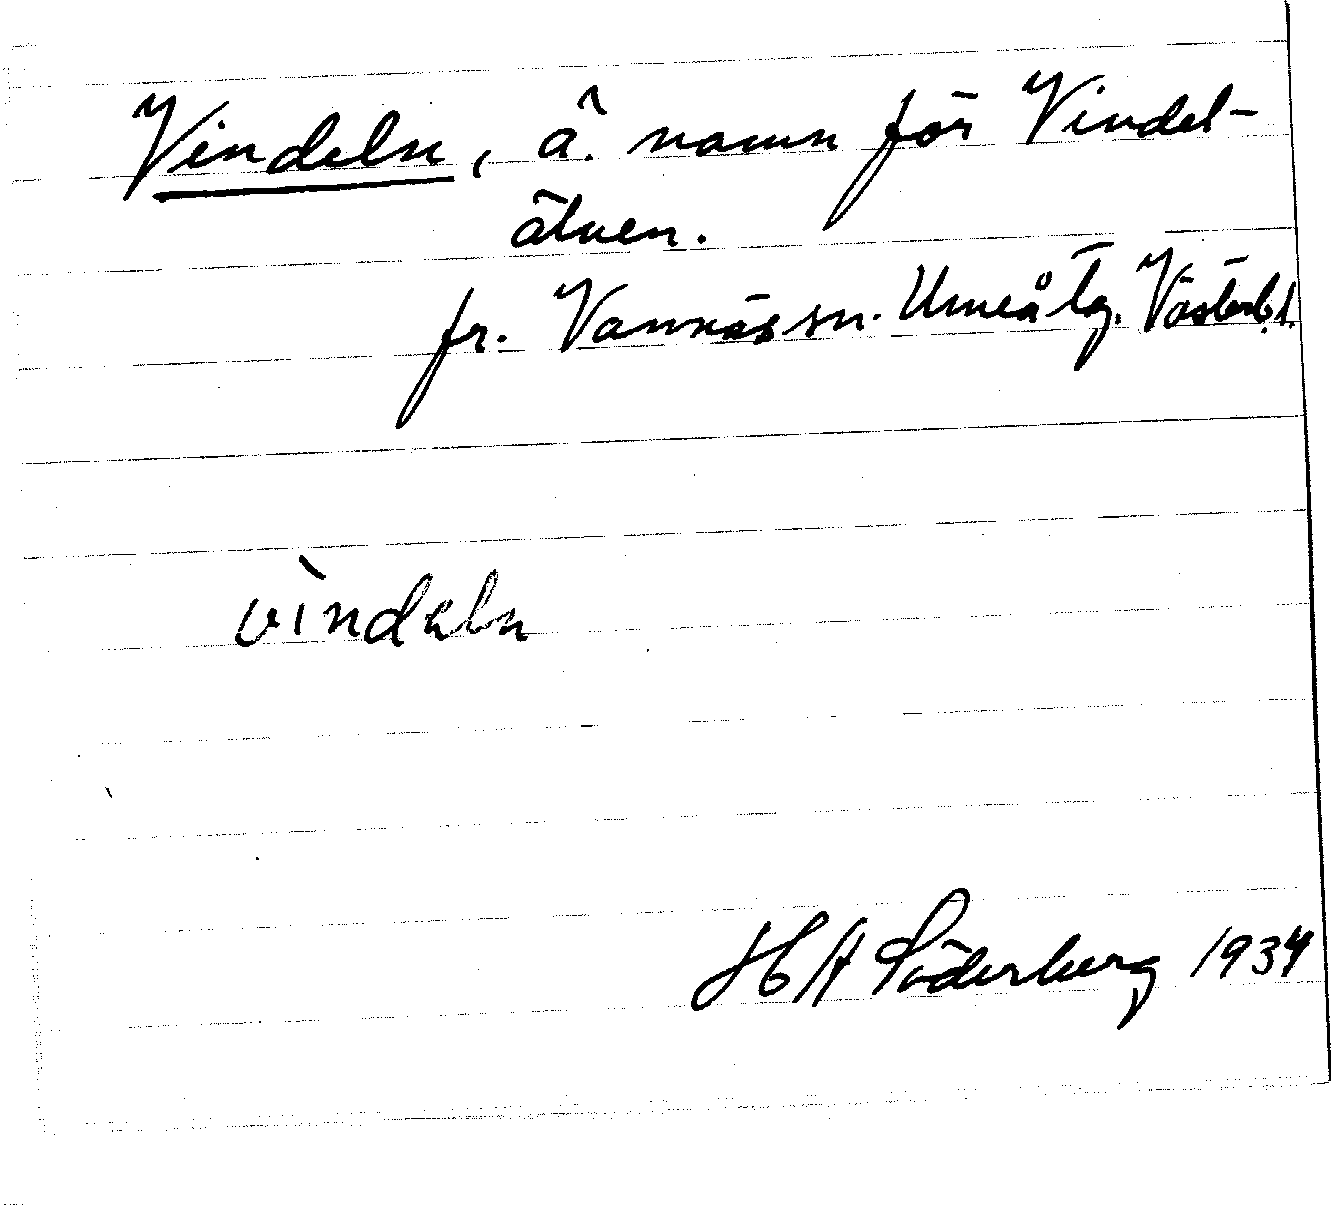 Vindeln, å. namn för Vindel-
älven.
fr. Vännäs sn. Umeå tg. Västerb. l.
vìndeln
H A Söderberg 1934